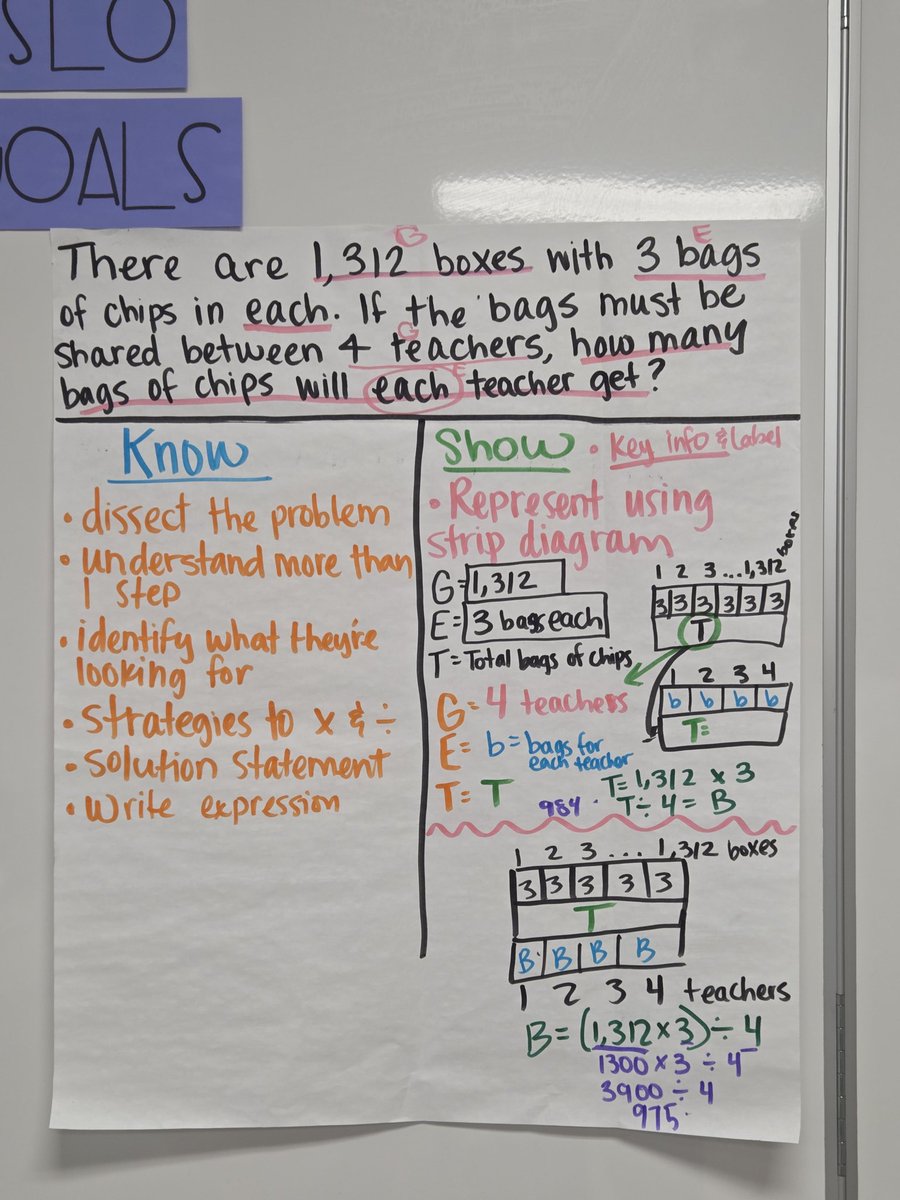 SLO
OALS
There are 1,312 boxes with 3 bags
G
E
of chips in each. If the bags must be
shared between 4 teachers, how many
G
bags of chips will each teacher get?
E
Know
• dissect the problem
• understand more than
1 step
• identify what they're
looking for
• Strategies to x & ÷
• Solution Statement
• Write expression
Show • Key info & Label
• Represent using
strip diagram
G=1,312
E= 3 bags each
T= Total bags of chips
1 2 3 ...1,312 boxes
3 3 3 3 3 3
T
G= 4 teachers
E= b= bags for
each teacher
T= T
1 2 3 4
b b b b
T=
T=1,312 x 3
984 • T÷4= B
1 2 3 ... 1,312 boxes
3 3 3 3 3
T
B B B B
1 2 3 4 teachers
B=(1,312x3)÷4
1300 x 3 ÷ 4
3900 ÷ 4
975